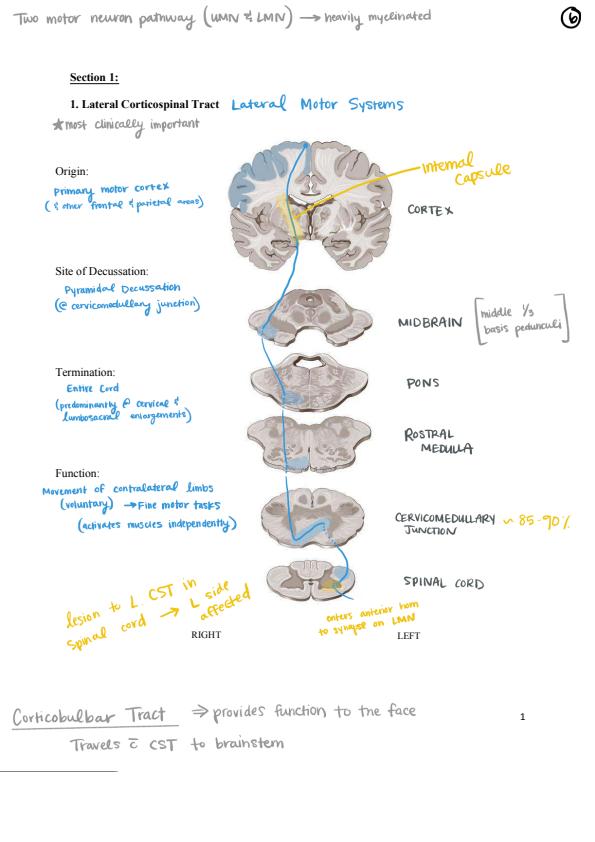 Two motor neuron pathway (UMN & LMN) → heavily myelinated
6
Section 1:
1. Lateral Corticospinal Tract Lateral Motor Systems
★most clinically important
Origin:
Primary motor cortex
(& other frontal & parietal areas)
Internal
Capsule
CORTEX
Site of Decussation:
Pyramidal Decussation
(@ cervicomedullary junction)
MIDBRAIN
[middle 1/3
basis pedunculi]
Termination:
Entire Cord
(predominantly @ cervical &
lumbosacral enlargements)
PONS
ROSTRAL
MEDULLA
Function:
Movement of contralateral limbs
(voluntary) → Fine motor tasks
(activates muscles independently)
CERVICOMEDULLARY
JUNCTION ~ 85-90%
SPINAL CORD
lesion to L CST in
spinal cord → L side
affected
enters anterior horn
to synapse on LMN
RIGHT
LEFT
Corticobulbar Tract ⇒ provides function to the face
Travels c̄ CST to brainstem
1